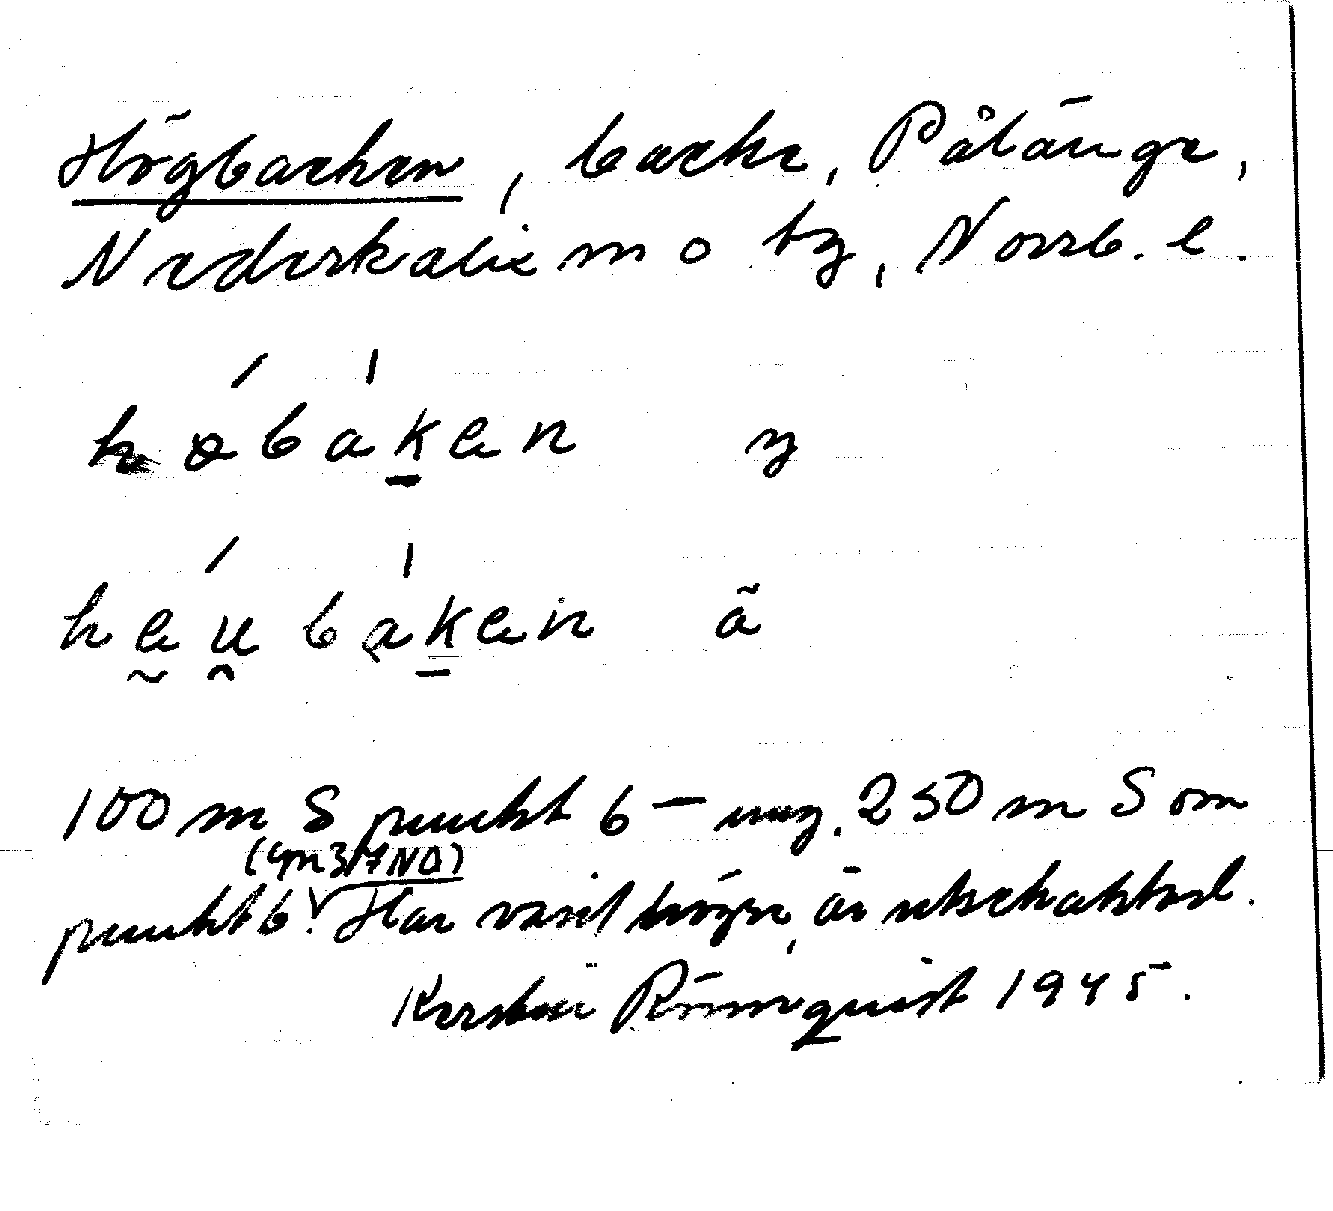 Högbacken, backe, Pålänge,
Nederkalix mo ty, Norrb. l.
høbaken y
heubaken ä
100 m S punkt 6 – ung. 250 m S om
(4m3/4 NO)
punkt 6. Har varit högre, är utschaktad.
Kerstin Rönnquist 1945.